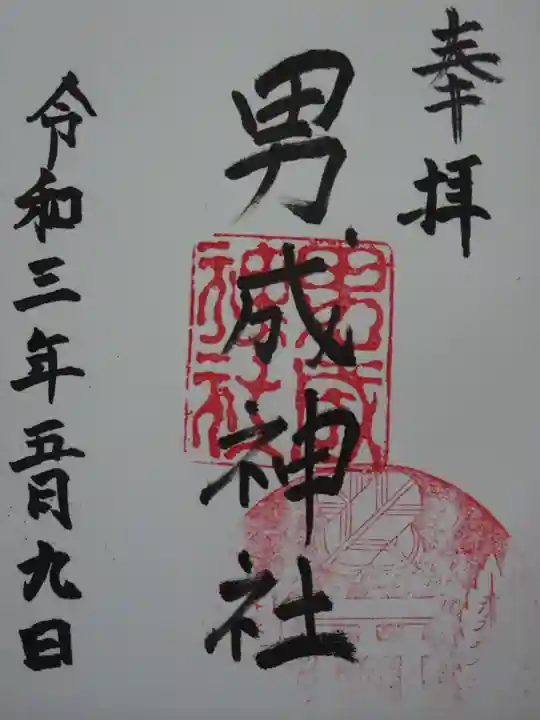 奉拝
男成神社
男成
神社
令和三年五月九日